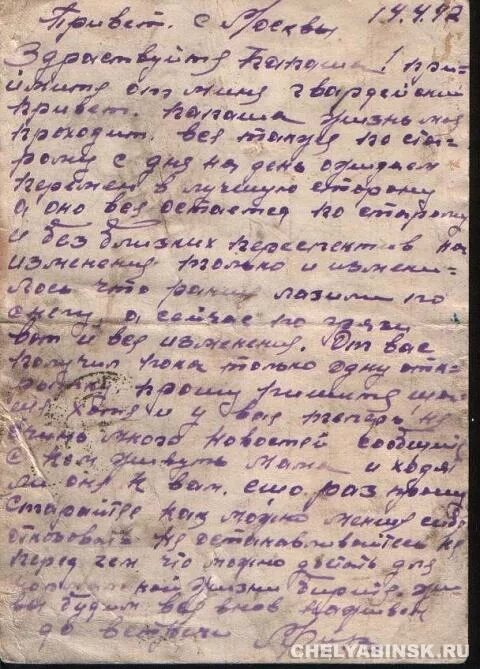 Привет с Москвы. 14.4.42
Здраствуйте Папаша! при-
имите от меня гвардейский
привет. папаша жизнь моя
проходит. все также по ста-
рому с дня на день ожидаем
перемен в лучшую сторону
а оно все остается по старому
и без близких переспектив на
изменения только и измени-
лось что раньше лазили по
снегу, а сейчас по грязи
вот и все изменения. От вас
получил пока только одну отк-
прошу пишите
хотя и у вас теперь не
очинь много новостей сообщите
с кем живуть мама и ходя
ли оне к вам. ешо раз прошу
старайтесь как можно меньше себе
отказовать не останавливайтесь не
перед чем что можно достать для
нормальной жизни берите. жи-
вы будим все внов наживем
до встречи
CHELYABINSK.RU